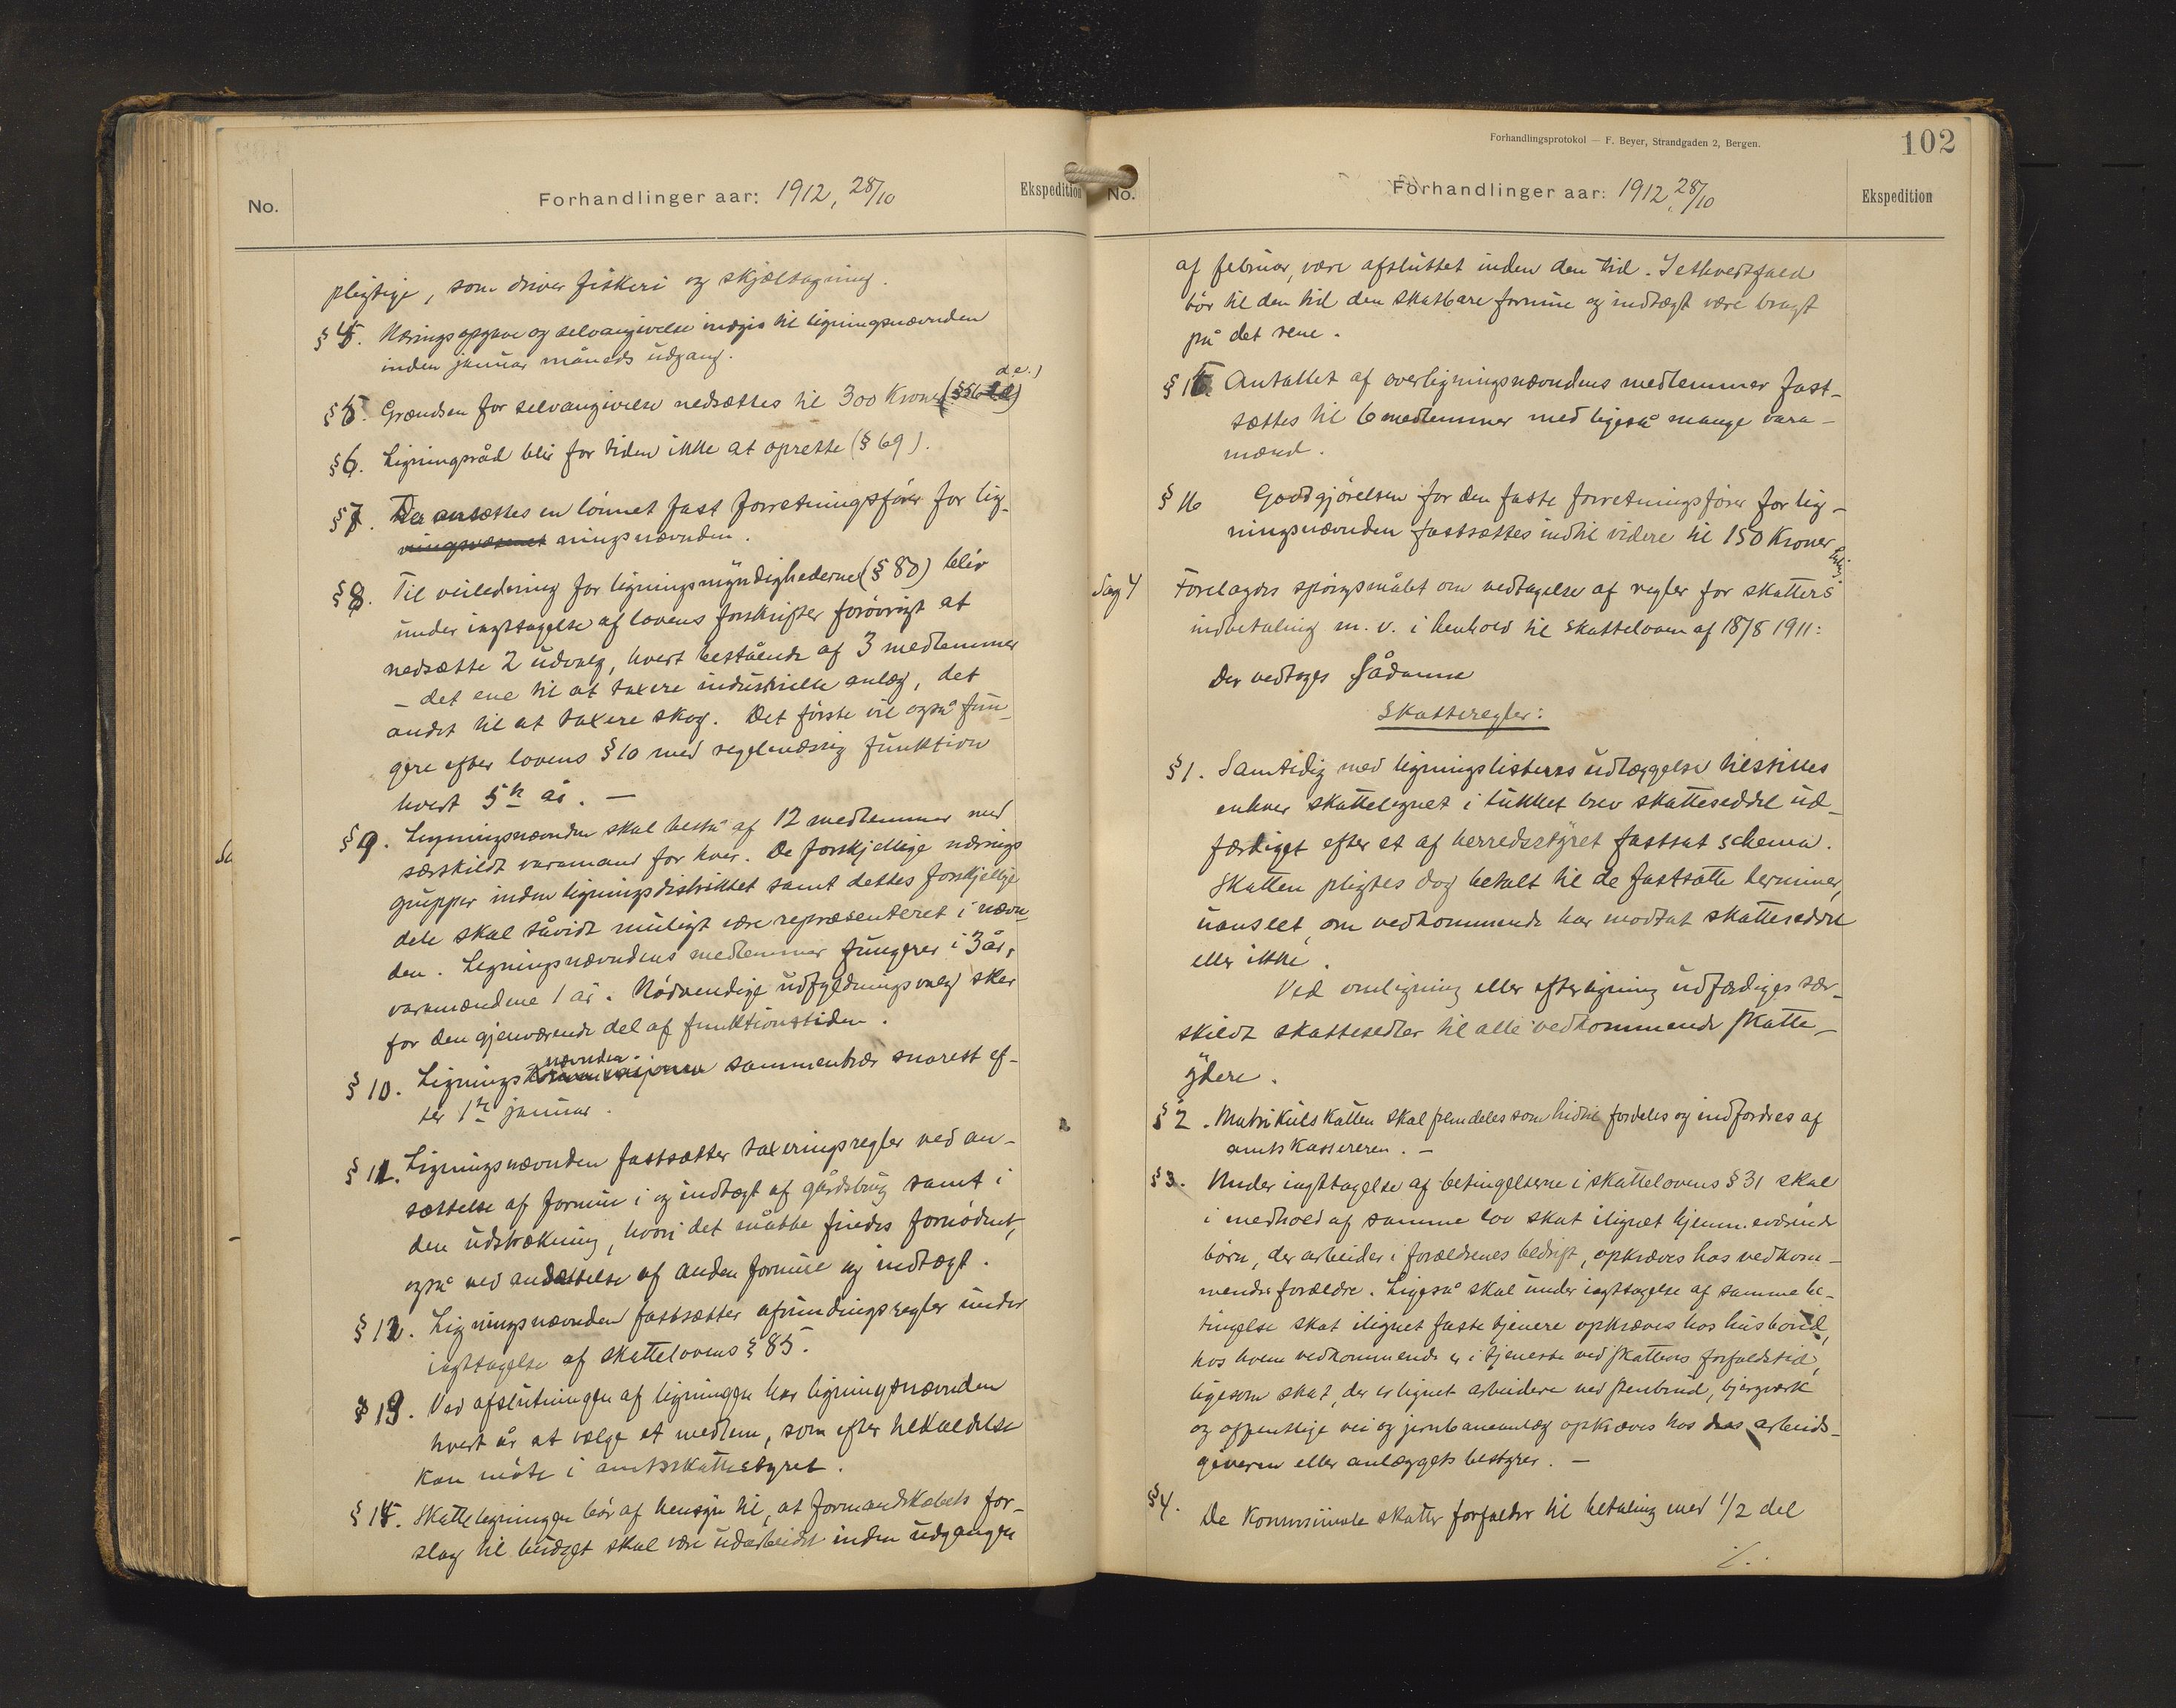 No.
Forhandlinger aar: 1912, 28/10
Ekspedition
pligtige, som driver fiskeri og skjæltagning.
§ 4. Næringsopgave og selvangivelse indgis til ligningsnævnden
inden januar måneds udgang.
§ 5. Grændsen for selvangivelse nedsættes til 300 Kroner
§ 6. Ligningsråd blir for tiden ikke at oprette (§ 69).
§ 7. Der ansættes en lönnet fast forretningsfører for lig-
ningsvæsenet ningsnævnden.
§ 8. Til veiledning for ligningsmyndighederne (§ 80) bliv
under iagttagelse af lovens forskrifter forøvrigt at
nedsætte 2 udvalg, hvert bestående af 3 medlemmer
- det ene til at taxere industrielle anlæg, det
andet til at taxere skog. Det første vil også fun-
gere efter lovens § 10 med regelmæssig funktion
hvert 5te år. -
§ 9. Ligningsnævnden skal bestå af 12 medlemmer med
særskildt varamand for hver. De forskjellige nærings
grupper inden ligningsdistriktet samt dettes forskjellige
dele skal såvidt muligt være repræsenteret i nævn
den. Ligningsnævndens medlemmer fungerer i 3 år,
varamændene 1 år. Nödvendige udfyldningsvalg sker
for den gjenværende del af funktionstiden.
nævnden
§ 10. Lignings kommisjonen sammentrær snarest ef-
ter 1ste januar.
§ 11. Ligningsnævnden fastsætter taxeringsregler ved an-
sættelse af formue i og indtægt af gårdsbrug samt i
den udstrækning, hvori det måtte findes fornødent,
også ved ansættelse af anden formue og indtægt.
§ 12. Ligningsnævnden fastsætter afrundingsregler under
iagttagelse af skattelovens § 85.
§ 13. Ved afslutningen af ligningen har ligningsnævnden
hvert år at vælge et medlem, som efter tilkaldelse
kan møte i amtsskattestyret.
§ 14. Skatteligningen bör af hensyn til, at formandskabets for-
slag til budget skal være udarbeidet inden udgangen
Forhandlingsprotokol — F. Beyer, Strandgaden 2, Bergen.
102
No.
Forhandlinger aar: 1912, 28/10
Ekspedition
af februar, være afsluttet inden den tid. I ethvertfald
bör til den tid den skatbare formue og indtægt være bragt
på det rene.
§ 15 Antallet af overligningsnævndens medlemmer fast-
sættes til 6 medlemmer med ligeså mange vara-
mænd.
§ 16 Godtgjörelsen for den faste forretningsfører for lig-
ningsnævnden fastsættes indtil videre til 150 Kroner
Sag 4 Forelagdes spörgsmålet om vedtagelse af regler for skatters
indbetaling m. v. i henhold til skatteloven af 18/8 1911:
Der vedtoges sådanne
Skatteregler:
§ 1. Samtidig med ligningslisterns udlæggelse tilstilles
enhver skattelignet i lukket brev skatteseddel ud-
færdiget efter et af herredsstyret fastsat schema.
Skatten pligtes dog betalt til de fastsatte terminer,
uanseet, om vedkommende har modtat skatteseddel
eller ikke.
Ved omligning eller efterligning udfærdiges sær-
skildt skattesedler til alle vedkommende skatte-
ydere.
§ 2. Matrikulskatten skal fremdeles som hidtil fordeles og indfordres af
amtskassereren. -
§ 3. Under iagttagelse af betingelserne i skattelovens § 31 skal
i medhold af samme lov skat ilignet hjemmeværende
børn, der arbeider i forældrenes bedrift, opkræves hos vedkom-
mendes forældre. Ligeså skal under iagttagelse af samme be-
tingelse skat ilignet faste tjenere opkræves hos husbond,
hos hvem vedkommende er i tjeneste ved skattens forfaldstid,
ligesom skat, der er lignet arbeidere ved stenbrud, bjergværk
og offentlige vei og jernbaneanlæg opkræves hos arbeids-
giveren eller anlæggets bestyrer. -
§ 4. De Kommunale skatter forfalder til betaling med 1/2 del